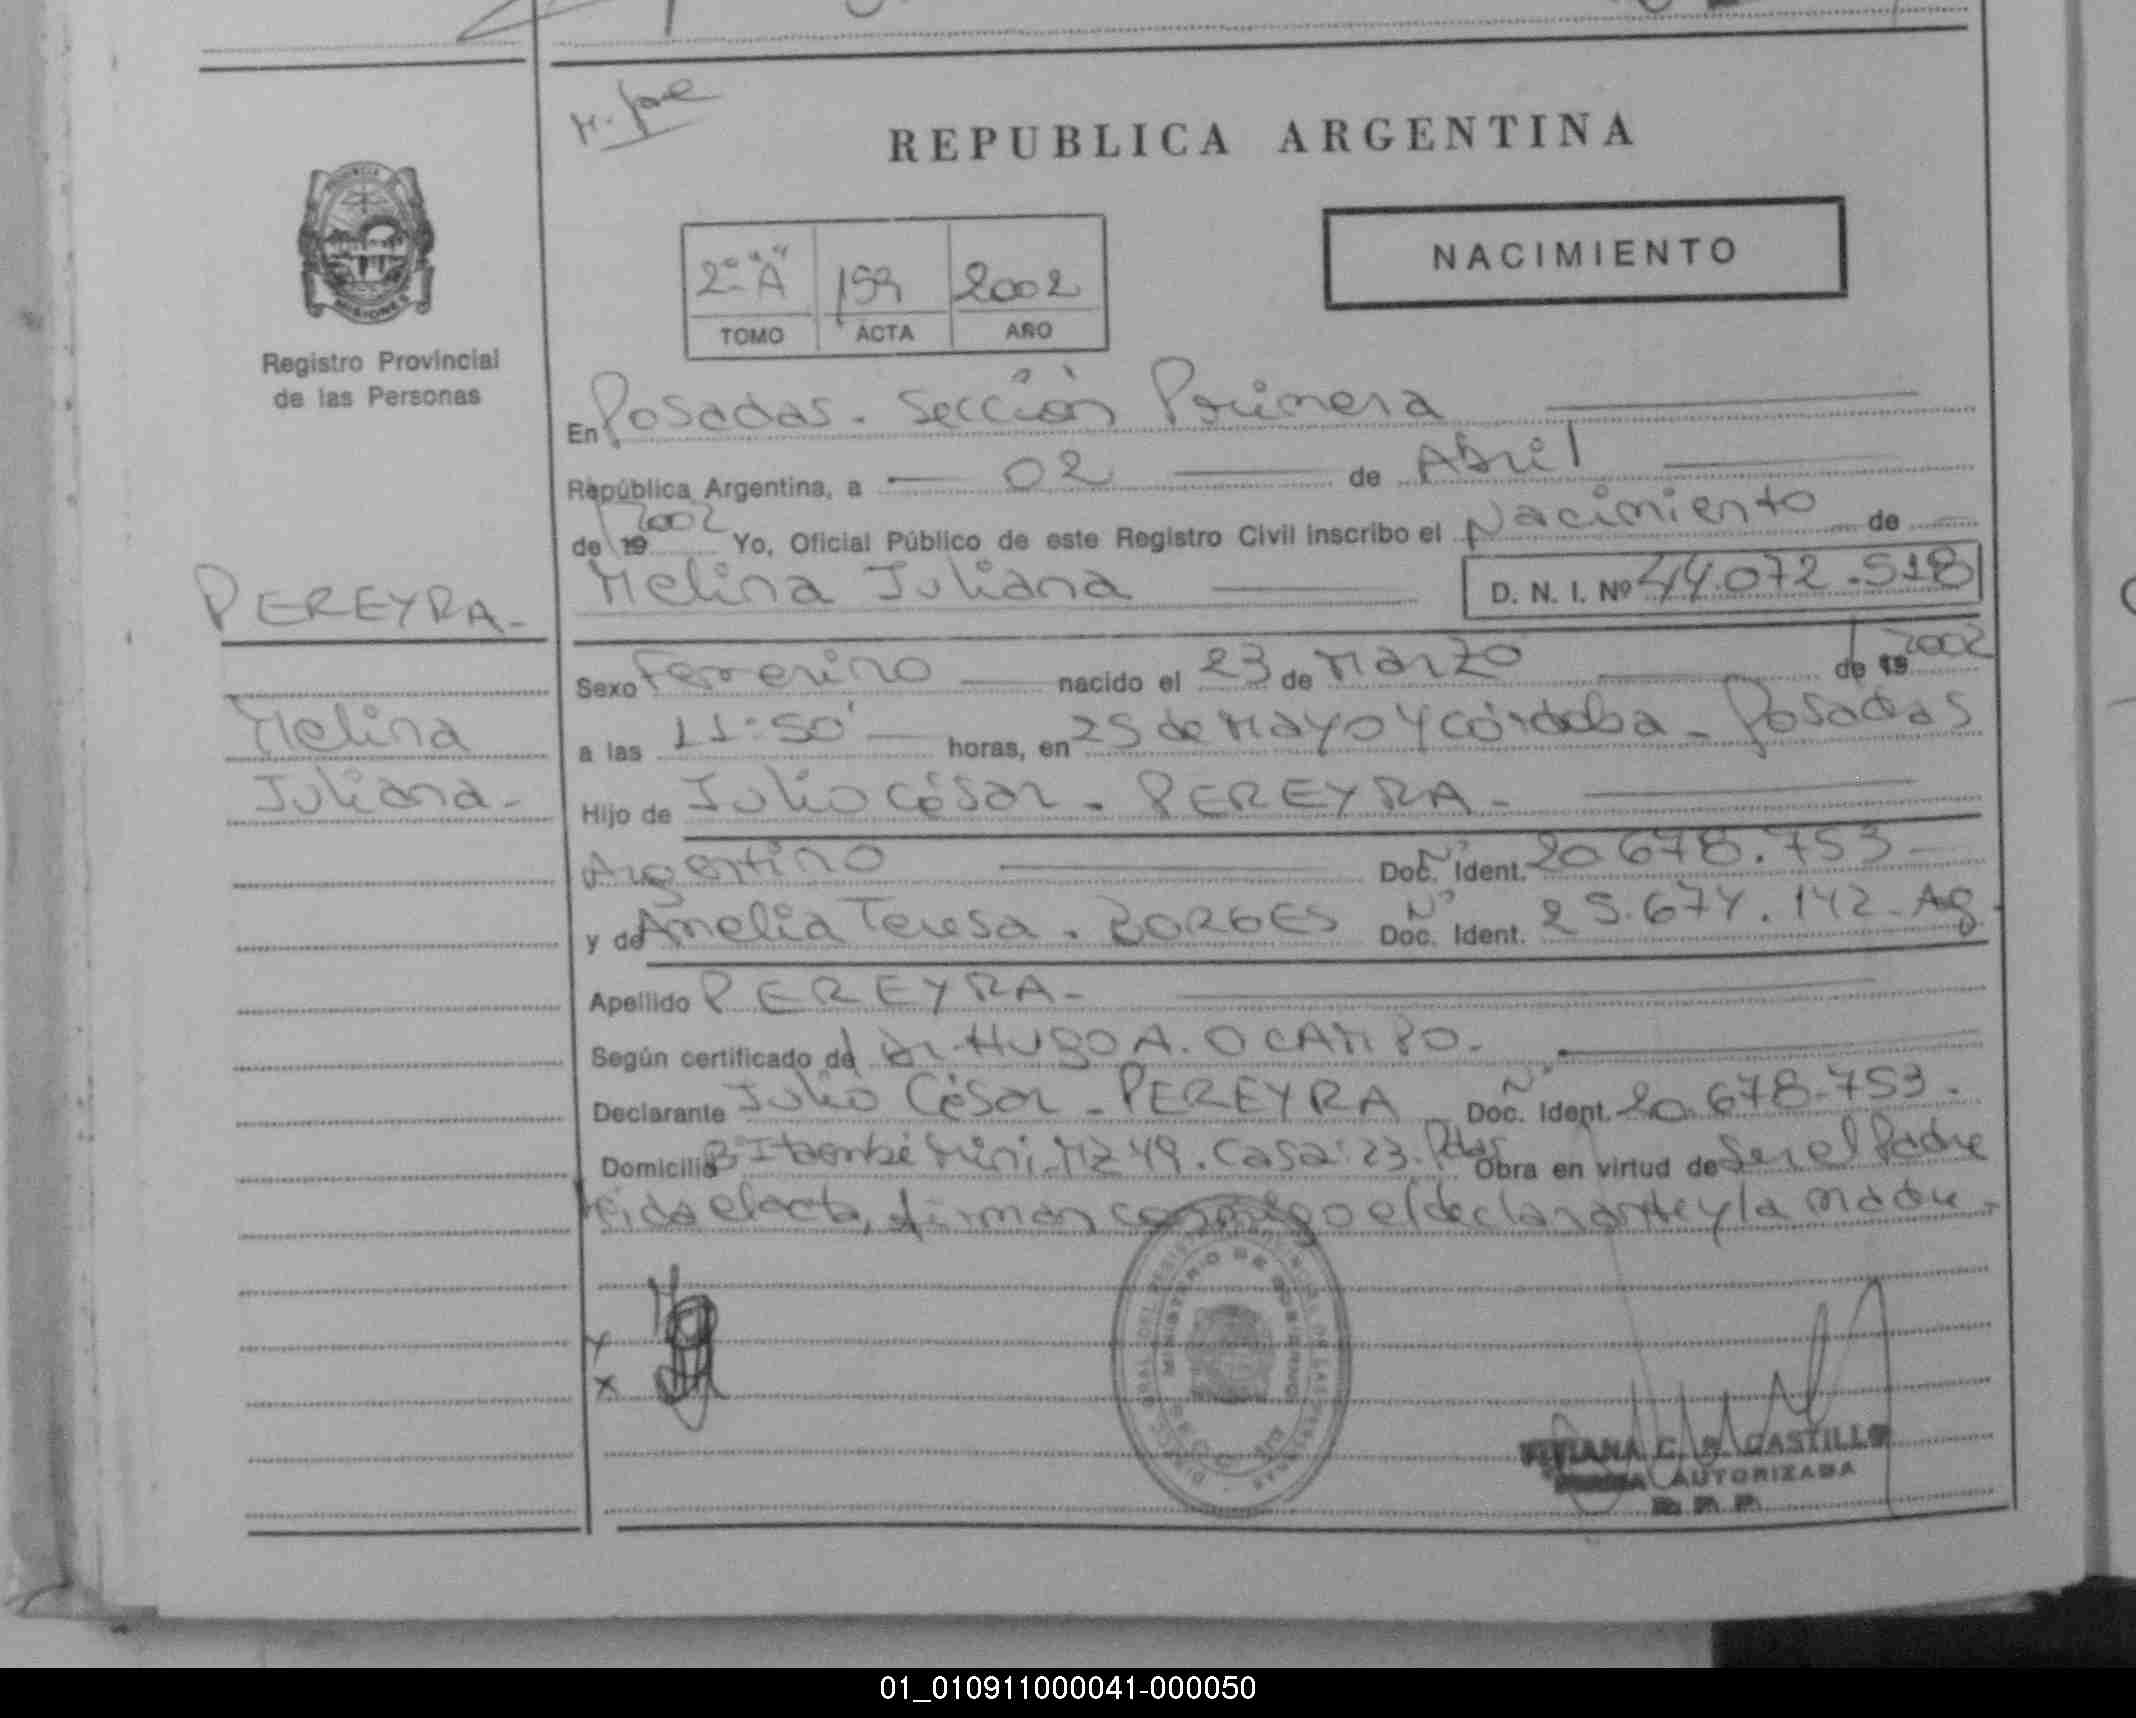 REPUBLICA ARGENTINA
NACIMIENTO
2º "A" 159 2002
TOMO ACTA AÑO
Registro Provincial
de las Personas
En Posadas - Sección Primera
República Argentina, a 02 de Abril
de 19 2002 Yo, Oficial Público de este Registro Civil inscribo el Nacimiento de
PEREYRA -
Melina Juliana D. N. I. Nº 44.072.518
Sexo Femenino nacido el 23 de Marzo de 19 2002
Melina
a las 11:50' horas, en 25 de Mayo y Córdoba - Posadas
Juliana -
Hijo de Julio César - PEREYRA -
Argentino Doc. Nº Ident. 20.678.753
y de Amelia Teresa - BORGES Doc. Nº Ident. 25.674.142 - Ag.
Apellido PEREYRA -
Según certificado del Dr. HUGO A. OCAMPO -
Declarante Julio César - PEREYRA Doc. Nº Ident. 20.678.753 -
Domicilio Bº Itaembé Miní. MZ 49. Casa: 23. Pdas Obra en virtud de Ser el Padre
leída el acta, firman conmigo el declarante y la madre -
MINISTERIO DE GOBIERNO
VIVIANA C. CASTILLO
AUTORIZADA
01_010911000041-000050